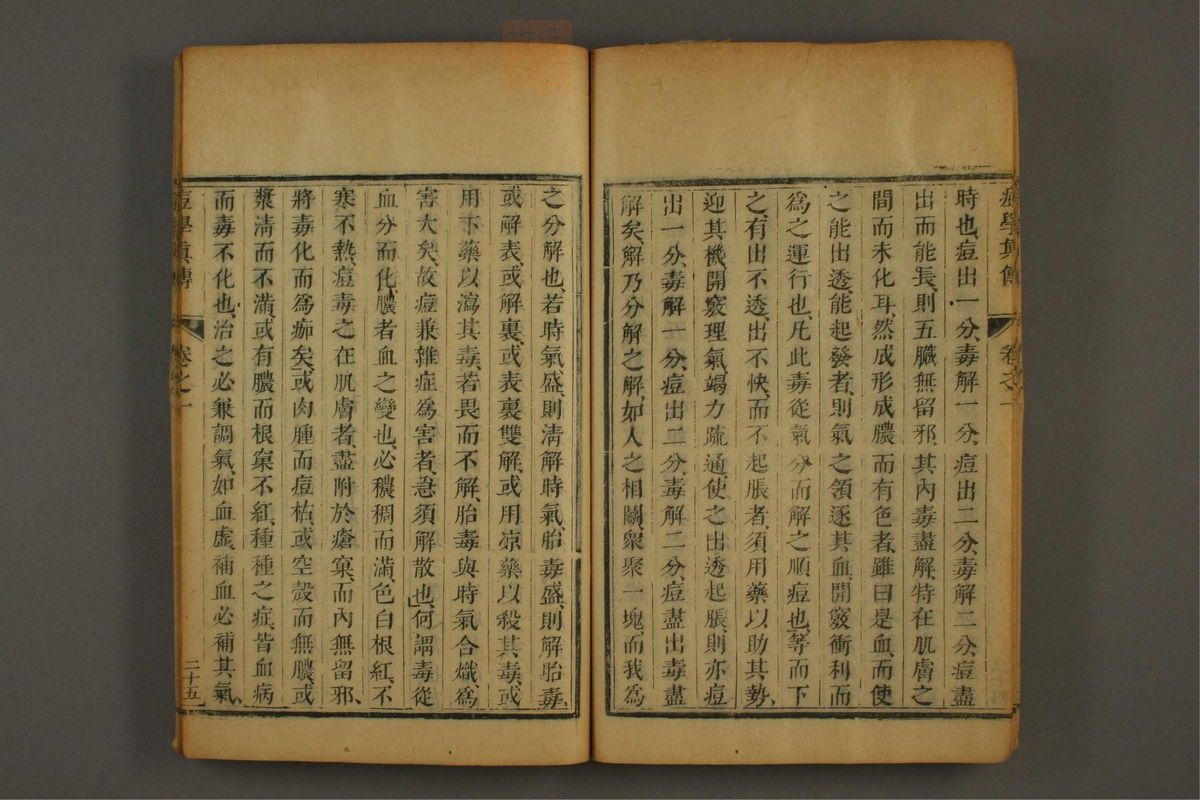 痘學真傳 卷之一
時也、痘出一分、毒解一分、痘出二分、毒解二分、痘盡
出而能長、則五臟無留邪、其內毒盡解、特在肌膚之
間而未化耳、然成形成膿而有色者、雖曰是血、而使
之能出透、能起發者、則氣之領逐其血、開竅衝利而
爲之運行也、凡此毒從氣分而解之順痘也、等而下
之、有出不透、出不快、而不起脹者、須用藥以助其勢、
迎其機、開竅理氣、竭力疏通、使之出透起脹、則亦痘
出一分、毒解一分、痘出二分、毒解二分、痘盡出毒盡
解矣、解乃分解之解、如人之相鬭、衆聚一塊、而我爲
之分解也、若時氣盛、則清解時氣、胎毒盛、則解胎毒、
或解表、或解裏、或表裏雙解、或用凉藥以殺其毒、或
用下藥以瀉其毒、若畏而不解、胎毒與時氣合熾、爲
害大矣、故痘兼雜症爲害者、急須解散也、何謂毒從
血分而化、膿者血之變也、必穠稠而滿、色白根紅、不
寒不熱、痘毒之在肌膚者、盡附於瘡窠、而內無留邪、
將毒化而爲痂矣、或肉腫而痘枯、或空殼而無膿、或
漿淸而不滿、或有膿而根窠不紅、種種之症、皆血病
而毒不化也、治之必兼調氣、如血虛、補血必補其氣、
痘學真傳 卷之一 二十五